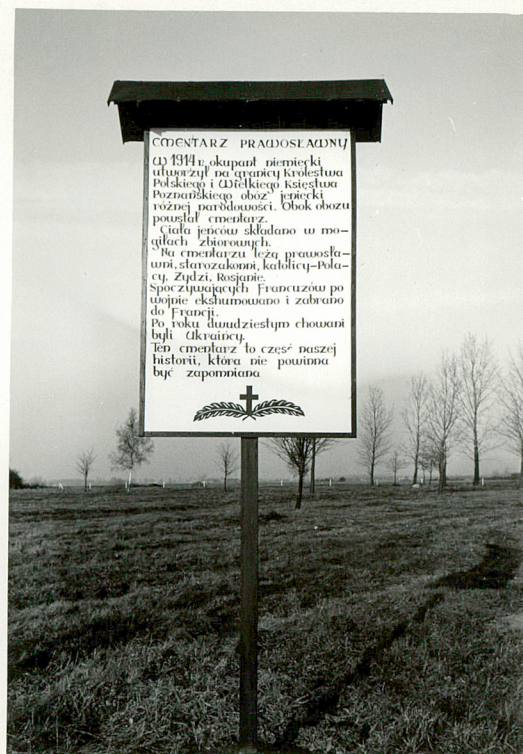 CMENTARZ PRAWOSŁAWNY
W 1914 r. okupant niemiecki
utworzył na granicy Królestwa
Polskiego i Wielkiego Księstwa
Poznańskiego obóz jeniecki
różnej narodowości. Obok obozu
powstał cmentarz.
Ciała jeńców składano w mo-
giłach zbiorowych.
Na cmentarzu leżą prawosła-
wni, starozakonni, katolicy-Pola-
cy, Żydzi, Rosjanie.
Spoczywających Francuzów po
wojnie ekshumowano i zabrano
do Francji.
Po roku dwudziestym chowani
byli Ukraińcy.
Ten cmentarz to część naszej
historii, która nie powinna
być zapomniana